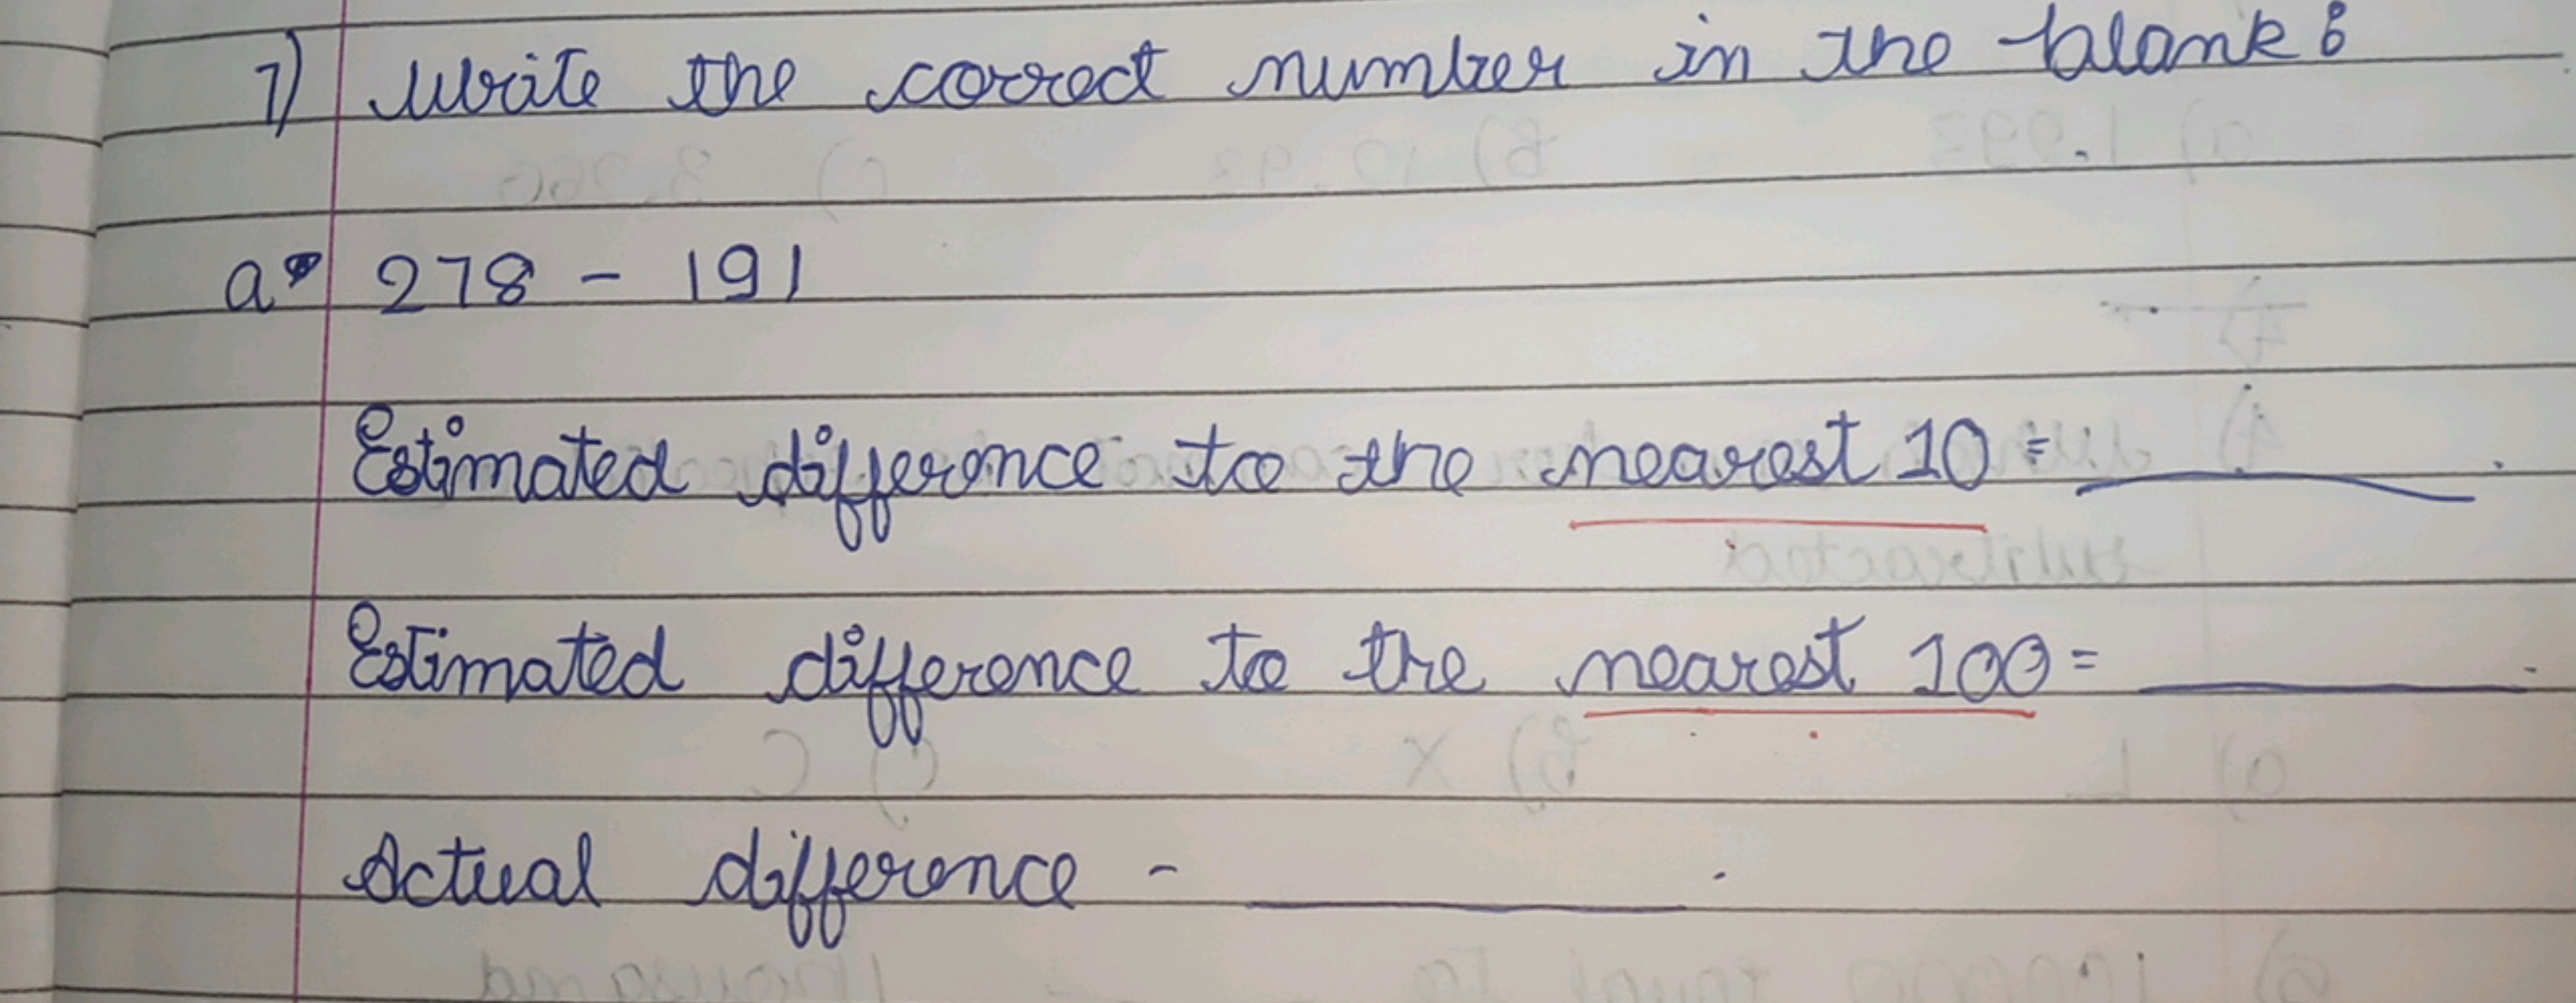 7) Write the correct number in the blank :
a. 278 - 191
Estimated difference to the nearest 10 = ________.
Estimated difference to the nearest 100 = ________.
Actual difference - ________.